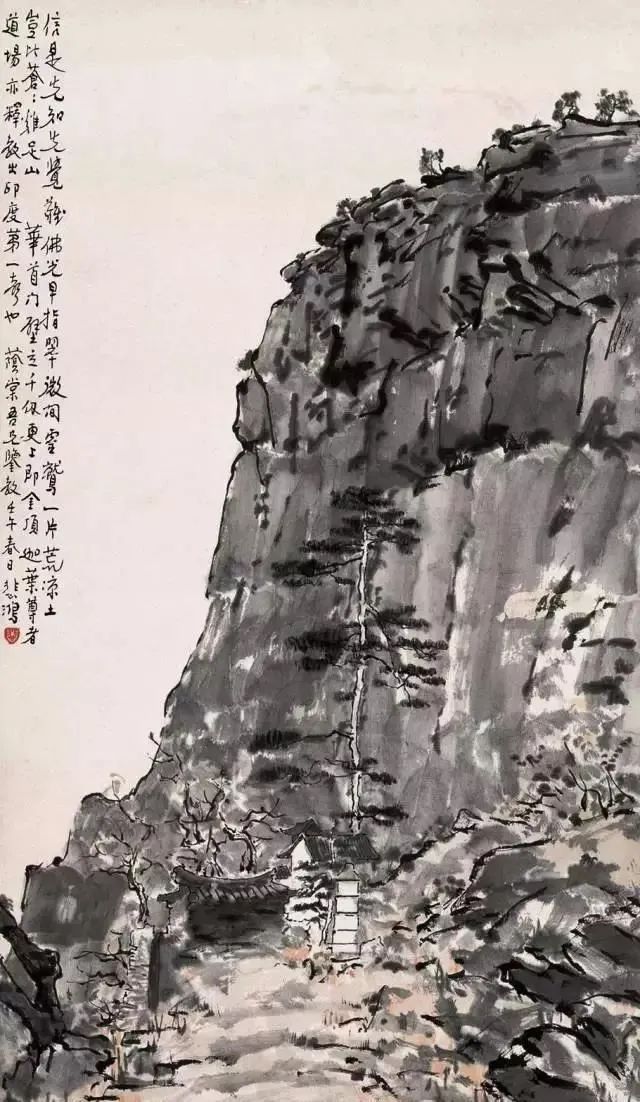 信是先知先覺難佛光早指翠微間靈鷲一片荒凉土
豈比蒼々雞足山 華首門壁立千仞更上即金頂迦葉尊者
道場亦釋教出印度第一聲也 蔭棠吾兄鑒教壬午春日悲鴻